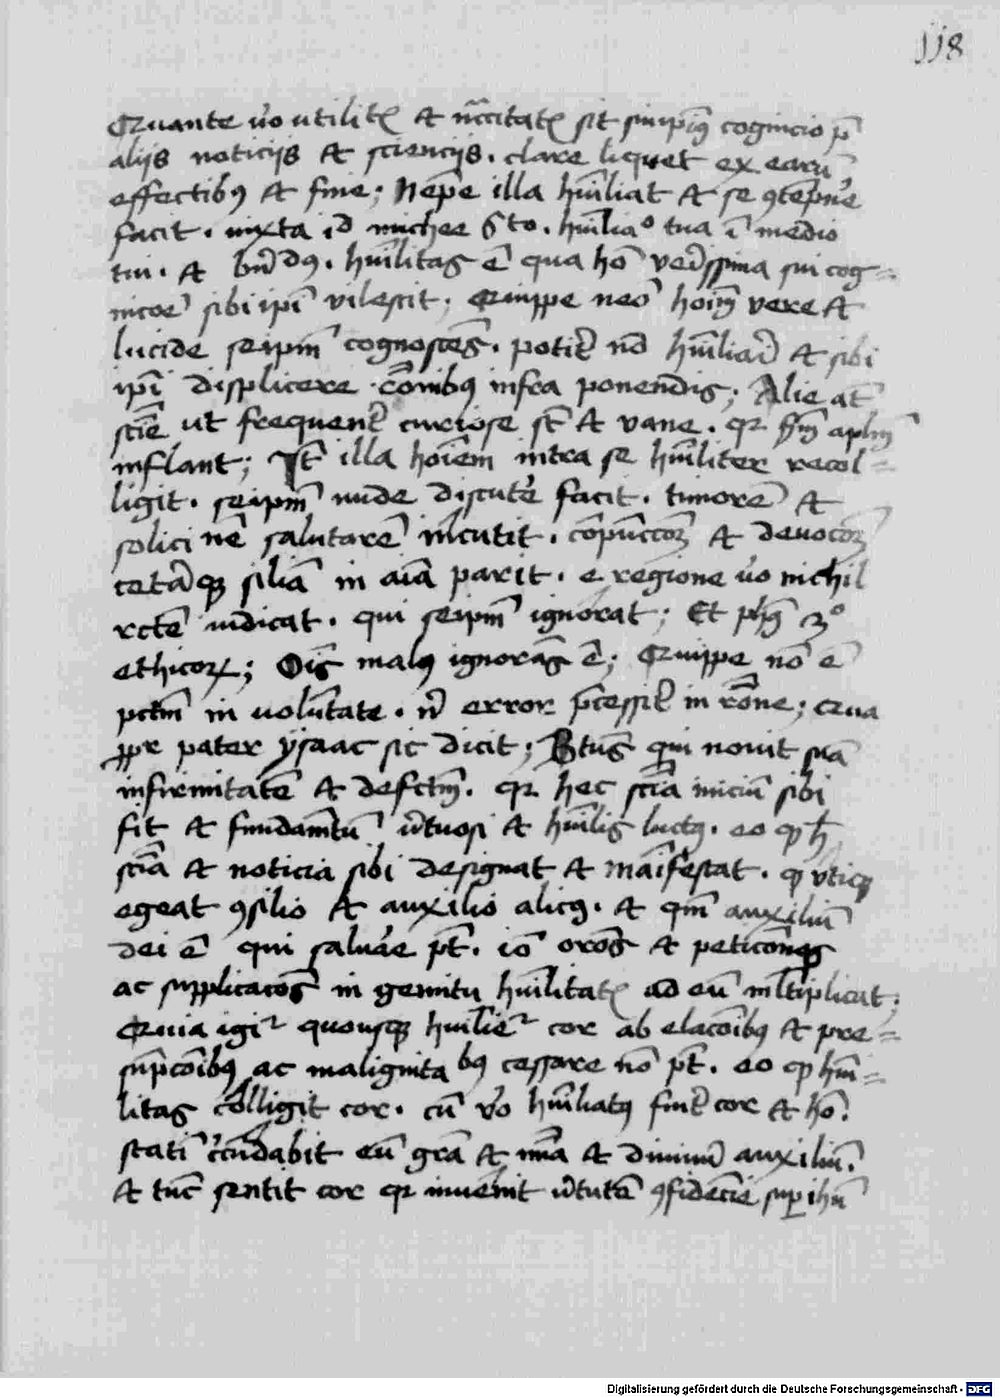 118
Quante v̓o utilitꝭ et nc̄citatꝭ sit suiip̄iꝰ cognicio p̄
aliis noticiis et scienciis. clare liquet ex earū
effectibꝰ et fine; Nēpe illa hūiliat et se ꝯtēpne̓
facit. iuxta id michee sͦto. hūiliaͦ tua ī medio
tui. et bn̄dꝰ. hūilitas ē qua hō ver̓ssima sui cog=
nicoē sibi ip̄i vilescit; Quippe neō hoīm vere et
lucide seip̄m cognoscēs. potit̓ nō hūiliari̓ et sibi
ip̄i displicere. c̄ onibꝰ infra ponendis; Alie at̄
scīe ut frequent̓ curiose st̄ et vane. qꝛ sm̄ aplm̄
inflant; It̄ illa hoīem intra se hūiliter recol=
ligit. seip̄m nude discute̓ facit. timorē et
solici nē salutarē īcutit. cōpūccōꝫ et deuocōꝫ
cetāqꝫ siliā in aīa parit. e regione v̓o nichil
rctē iudicat. qui seip̄m ignorat; Et ph̄s 3ͦ
ethicoꝝ; Oīs malꝰ ignorās ē; Quippe nō ē
pctm̄ in volūtate. n̓ error p̄cessit̓ in rōne; Qua
ꝓpr pater ysaac sic dicit; Btūs qui nouit suā
infirmitatē et defctm̄. qꝛ hec scīa iniciū sibi
fit et fundamtū v̓tuosi et hūilis luctꝰ. eo ꝙ h̄
scīa et noticia sibi designat et maīfestat. ꝙ vtiqꝫ
egeat ꝯsilio et auxilio alicꝰ. et qm̄ auxiliū
dei ē qui saluae̓ pt̄. iō orōs et peticōnes
ac supplicacōs in gemitu hūilitatꝭ ad eū ml̄tiplicat;
Quia igiᷣ quousqꝫ huīlieᷣ cor ab elacōibꝰ et pre=
sūpcōibꝰ ac malignita bꝰ cessare nō pt̄. eo ꝙ hūi=
litas colligit cor. cū v̓o hūiliatꝰ fuit̓ cor et hō.
statī c̓cūdabit eū gr̄a et mīa et diuinū auxiliū.
et tūc sentit cor qꝛ inuenit v̓tutē ꝯfidēcie suꝑ ihū
Digitalisierung gefördert durch die Deutsche Forschungsgemeinschaft - DFG